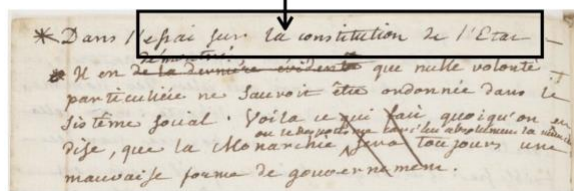 * Dans l'essai sur la constitution de l'Etat
démontré
* Il est de la derniére évidence que nulle volonté
particuliére ne sauroit être ordonnée dans le
sistême social. Voila ce qui fait quoiqu'on en
ou ce despotisme
dise, que la Monarchie sera toujours une
mauvaise forme de gouvernement.